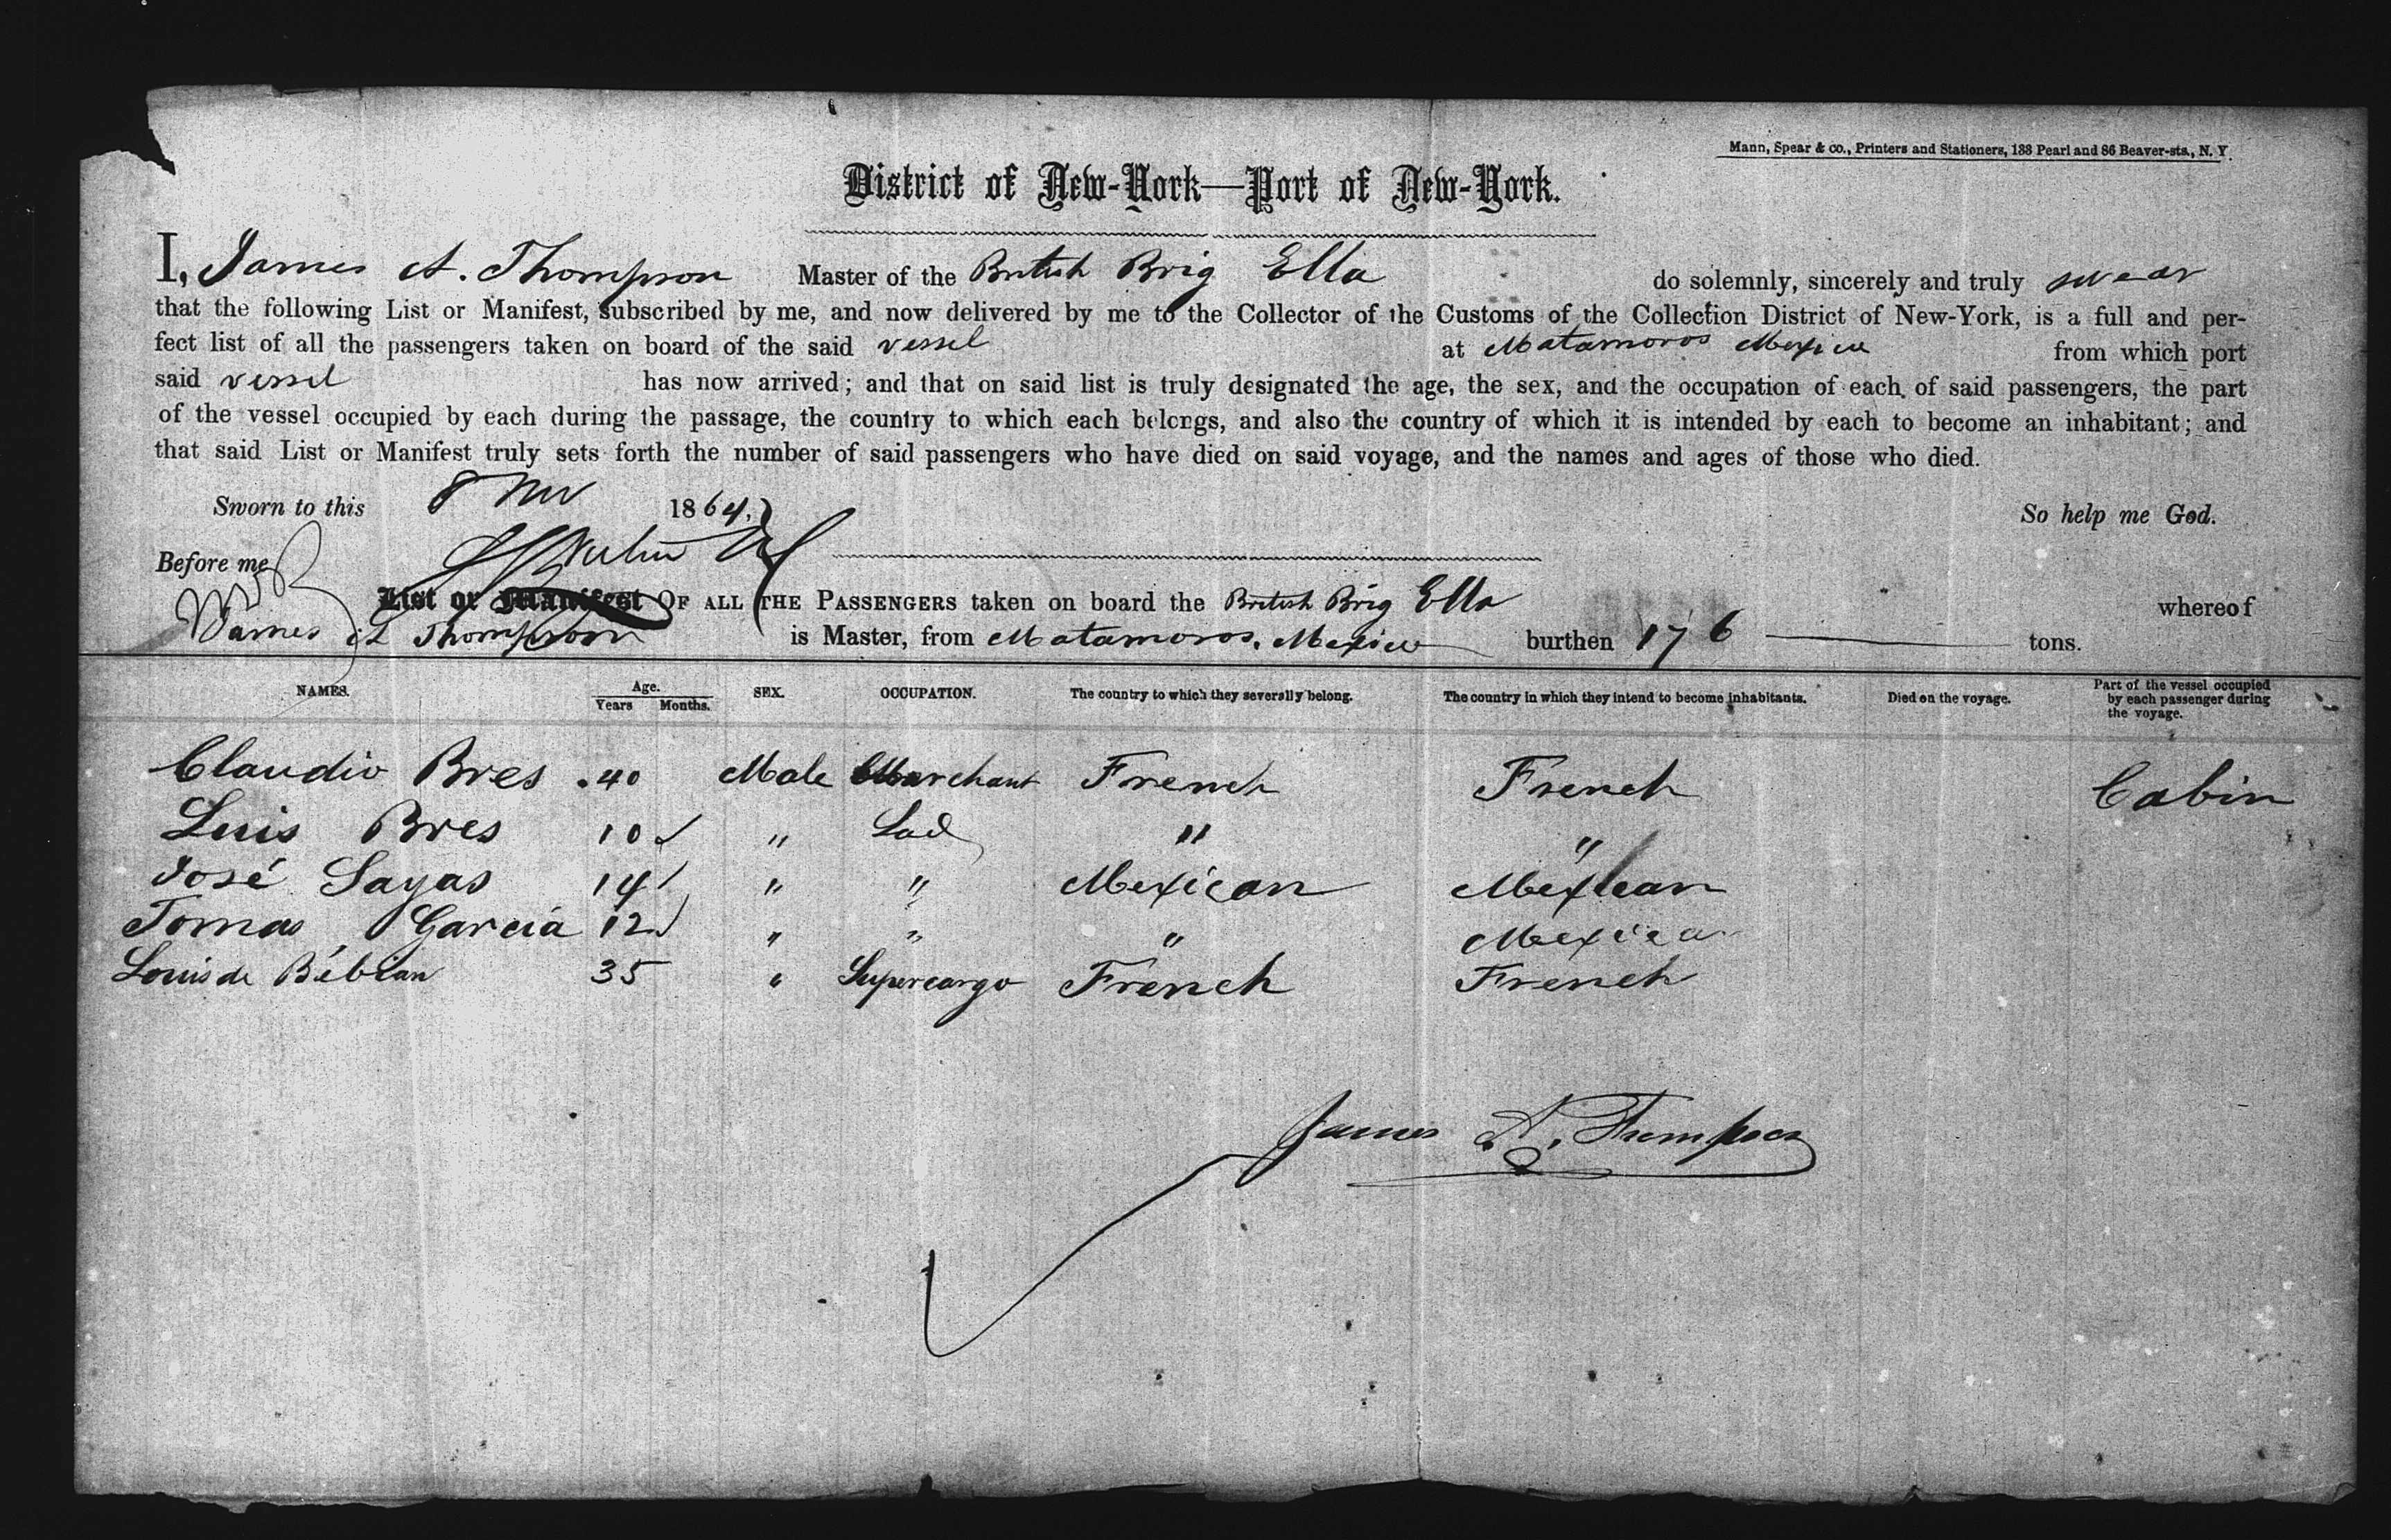 Mann, Spear & co., Printers and Stationers, 133 Pearl and 86 Beaver-sts., N. Y.
District of New-York—Port of New-York.
I, James A. Thompson Master of the British Brig Ella do solemnly, sincerely and truly swear
that the following List or Manifest, subscribed by me, and now delivered by me to the Collector of the Customs of the Collection District of New-York, is a full and per-
fect list of all the passengers taken on board of the said vessel at Matamoros Mexico from which port
said vessel has now arrived; and that on said list is truly designated the age, the sex, and the occupation of each of said passengers, the part
of the vessel occupied by each during the passage, the country to which each belongs, and also the country of which it is intended by each to become an inhabitant; and
that said List or Manifest truly sets forth the number of said passengers who have died on said voyage, and the names and ages of those who died.
Sworn to this 8 Nov 1864. So help me God.
Before me
List or Manifest OF ALL THE PASSENGERS taken on board the British Brig Ella whereof
James A Thompson is Master, from Matamoros, Mexico burthen 176 tons.
NAMES. Age. Years Months. SEX. OCCUPATION. The country to which they severally belong. The country in which they intend to become inhabitants. Died on the voyage. Part of the vessel occupied by each passenger during the voyage.
Claudio Bres 40 Male Marchant French French Cabin
Luis Bres 10 " Lad " "
José Sayas 14 " " Mexican Mexican
Tomas Garcia 12 " " " Mexican
Louis de Bébian 35 " Supercargo French French
James A. Thompson